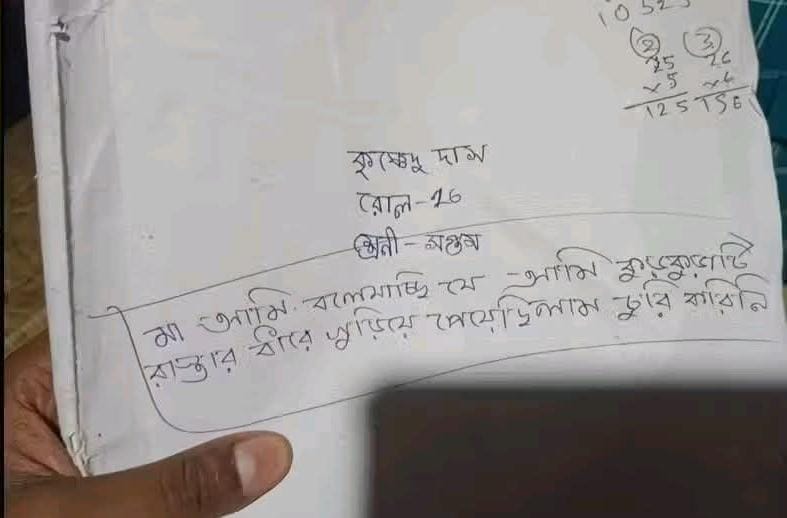 1052
2 3
25 26
x5 x6
125 156
কৃষ্ণেন্দু দাস
রোল-26
শ্রেনী - সপ্তম
মা আমি বলেযাচ্ছি যে আমি কুড়কুড়াটি
রাস্তার ধীরে খুড়িয়ে পেয়েছিলাম চুরি করিনি